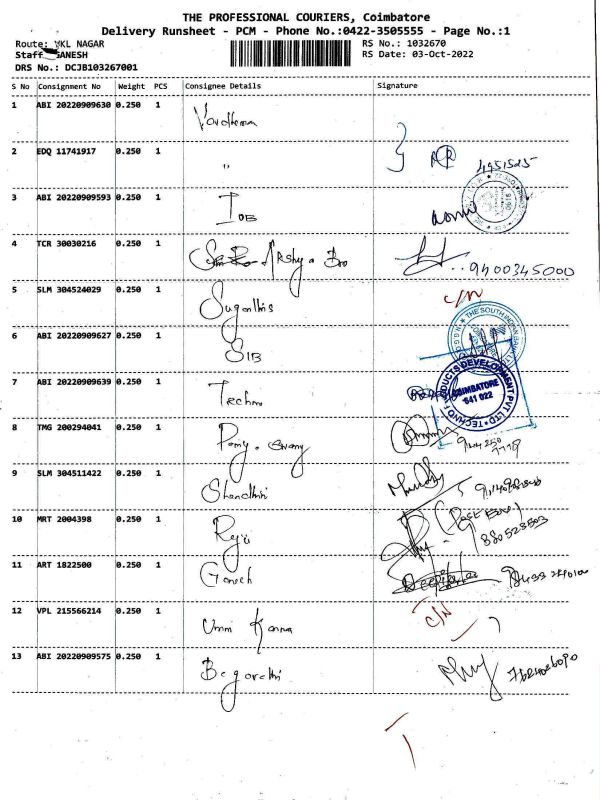 THE PROFESSIONAL COURIERS, Coimbatore
Delivery Runsheet - PCM - Phone No.:0422-3505555 - Page No.:1
Route: VKL NAGAR
RS No.: 1032670
Staff GANESH
RS Date: 03-Oct-2022
DRS No.: DCJB103267001
S No Consignment No Weight PCS Consignee Details Signature
1 ABI 20220909630 0.250 1 Vardhman
2 EDQ 11741917 0.250 1 "
3 ABI 20220909593 0.250 1 IOB
4 TCR 30030216 0.250 1 Arshya Bro 9400345000
5 SLM 304524029 0.250 1 Suganthis C/N
6 ABI 20220909627 0.250 1 SIB
THE SOUTH INDIAN
7 ABI 20220909639 0.250 1 Techno
TECHNO PRODUCTS DEVELOPMENT PVT LTD
COIMBATORE
641 022
8 TMG 200294041 0.250 1
9 SLM 304511422 0.250 1
10 MRT 2004398 0.250 1
11 ART 1822500 0.250 1 Ganesh
12 VPL 215566214 0.250 1 C/N
13 ABI 20220909575 0.250 1